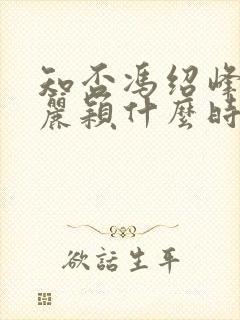 知否冯绍峰
麗颖什麼時
欲話生平